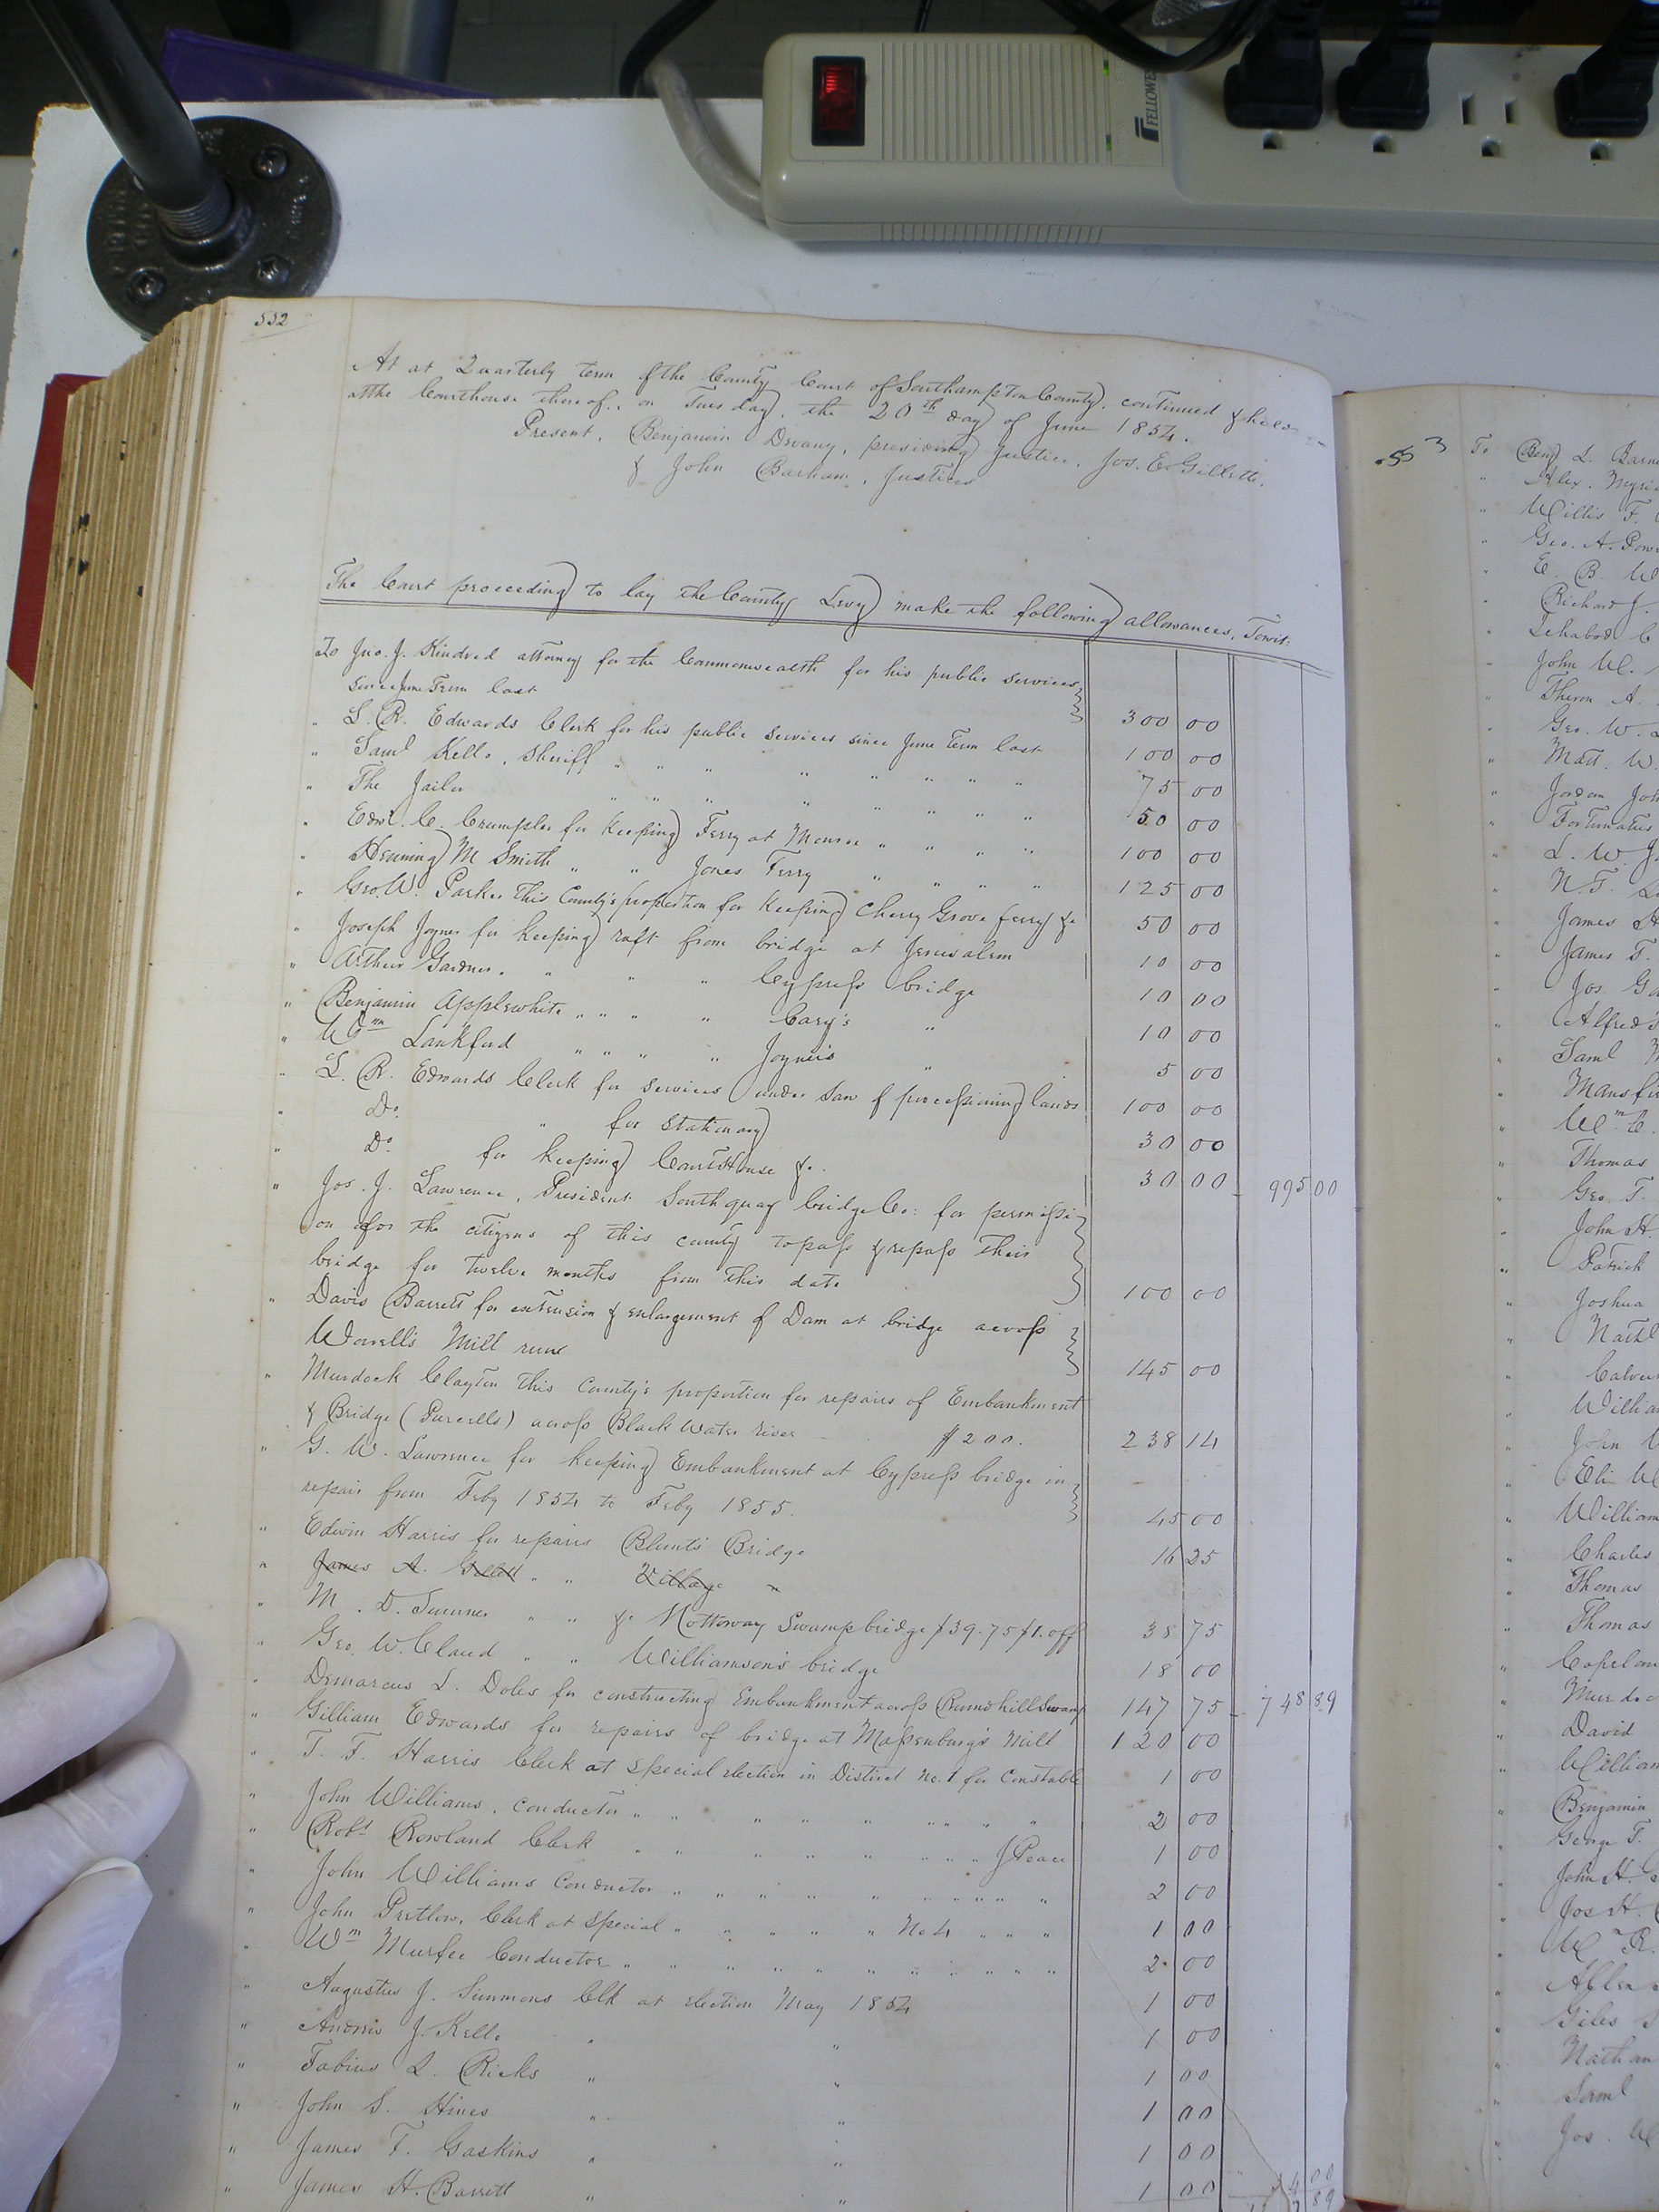 FELLOWE
552
At at Quarterly term of the County Court of Southampton County, continued & held
at the Courthouse thereof, on Tuesday, the 20th day of June 1854.
Present, Benjamin Devany, presiding Justice, Jos. E. Gillette.
& John Barham, Justices
The Court proceeding to lay the County Levy make the following allowances, Towit:
To Jno. J. Kindred attorney for the Commonwealth for his public services
since June Term last 300 00
" L. R. Edwards Clerk for his public services since June Term last 100 00
" Saml Kello, Sheriff " " " " " " " " 75 00
" The Jailor " " " " " " " " 50 00
" Edwd. C. Crumpler for keeping Ferry at Monroe " " " " 100 00
" Henning M Smith " " Jones Ferry " " " " 125 00
" Geo. W. Parker this County's proportion for keeping Cherry Grove ferry &c 50 00
" Joseph Joyner for keeping raft from bridge at Jerusalem 10 00
" Arthur Gardner. " " " Cypress bridge 10 00
" Benjamin Applewhite " " " " Cary's " 10 00
" Wm Lankford " " " " Joyner's " 5 00
" L. R. Edwards Clerk for services under Law of processioning lands 100 00
" Do. " for stationary 30 00
" Do for keeping CourtHouse &c. 30 00 995 00
" Jos. J. Lawrence, President Southquay bridge Co: for permissi-
on for the citizens of this county to pass & repass their
bridge for twelve months from this date 100 00
" Davis Barrett for extension & enlargement of Dam at bridge across
Worrell's Mill run 145 00
" Murdock Clayton this County's proportion for repairs of Embankment
& Bridge (Purcells) across Black Water river $200. 238 14
" G. W. Lawrence for keeping Embankment at Cypress bridge in
repair from Feby 1854 to Feby 1855. 45 00
" Edwin Harris for repairs Blunt's Bridge 16 25
" James A. Gillett " " Village "
" M. D. Sumner " " &c Nottoway Swamp bridge $39.75 $1. off 38 75
" Geo. W. Claud " " Williamson's bridge 18 00
" Demarcus L. Doles for constructing Embankment across Roundhill Swamp 147 75 748 89
" Gilliam Edwards for repairs of bridge at Massenburg's Mill 120 00
" T. F. Harris Clerk at special election in District No. 1 for Constable 1 00
" John Williams, conductor " " " " " " " " " 2 00
" Robt Rowland Clerk " " " " " " " " J Peace 1 00
" John Williams Conductor " " " " " " " " " " 2 00
" John Pretlow, Clerk at special " " " " " No 4 " " " 1 00
" Wm Murfee Conductor " " " " " " " " " " " 2 00
" Augustus J. Simmons Clk at election May 1854 1 00
" Andrew J. Kello " " 1 00
" Fabius L. Ricks " " 1 00
" John S. Hines " " 1 00
" James T. Gaskins " " 1 00
" James H. Barrett " " 1 00
553
To Benj L. Barne
" Alex. Myri
" Willis F.
" Geo. A. Pow
" E. B. W
" Richard J.
" Ichabod C
" John W.
" Theron A.
" Geo. W.
" Matt. W.
" Jordan Joh
" Fortunatus
" L. W. J
" N. T.
" James H
" James T.
" Jos. Ga
" Alfred
" Saml
" Mansfi
" Wm C.
" Thomas
" Geo. T.
" John H.
" Patrick
" Joshua
" Nathl
" Calver
" Willia
" John
" Eli W
" William
" Charles
" Thomas
" Thomas
" Copelan
" Murdoc
" David
" William
" Benjamin
" George T.
" John H.
" Jos H.
" Wm R.
" Allen
" Giles
" Nathan
" Saml
" Jos. W